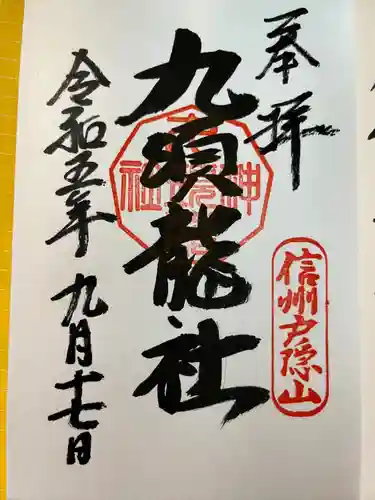 奉拝
信州戸隠山
九頭龍社
令和五年
九月十七日